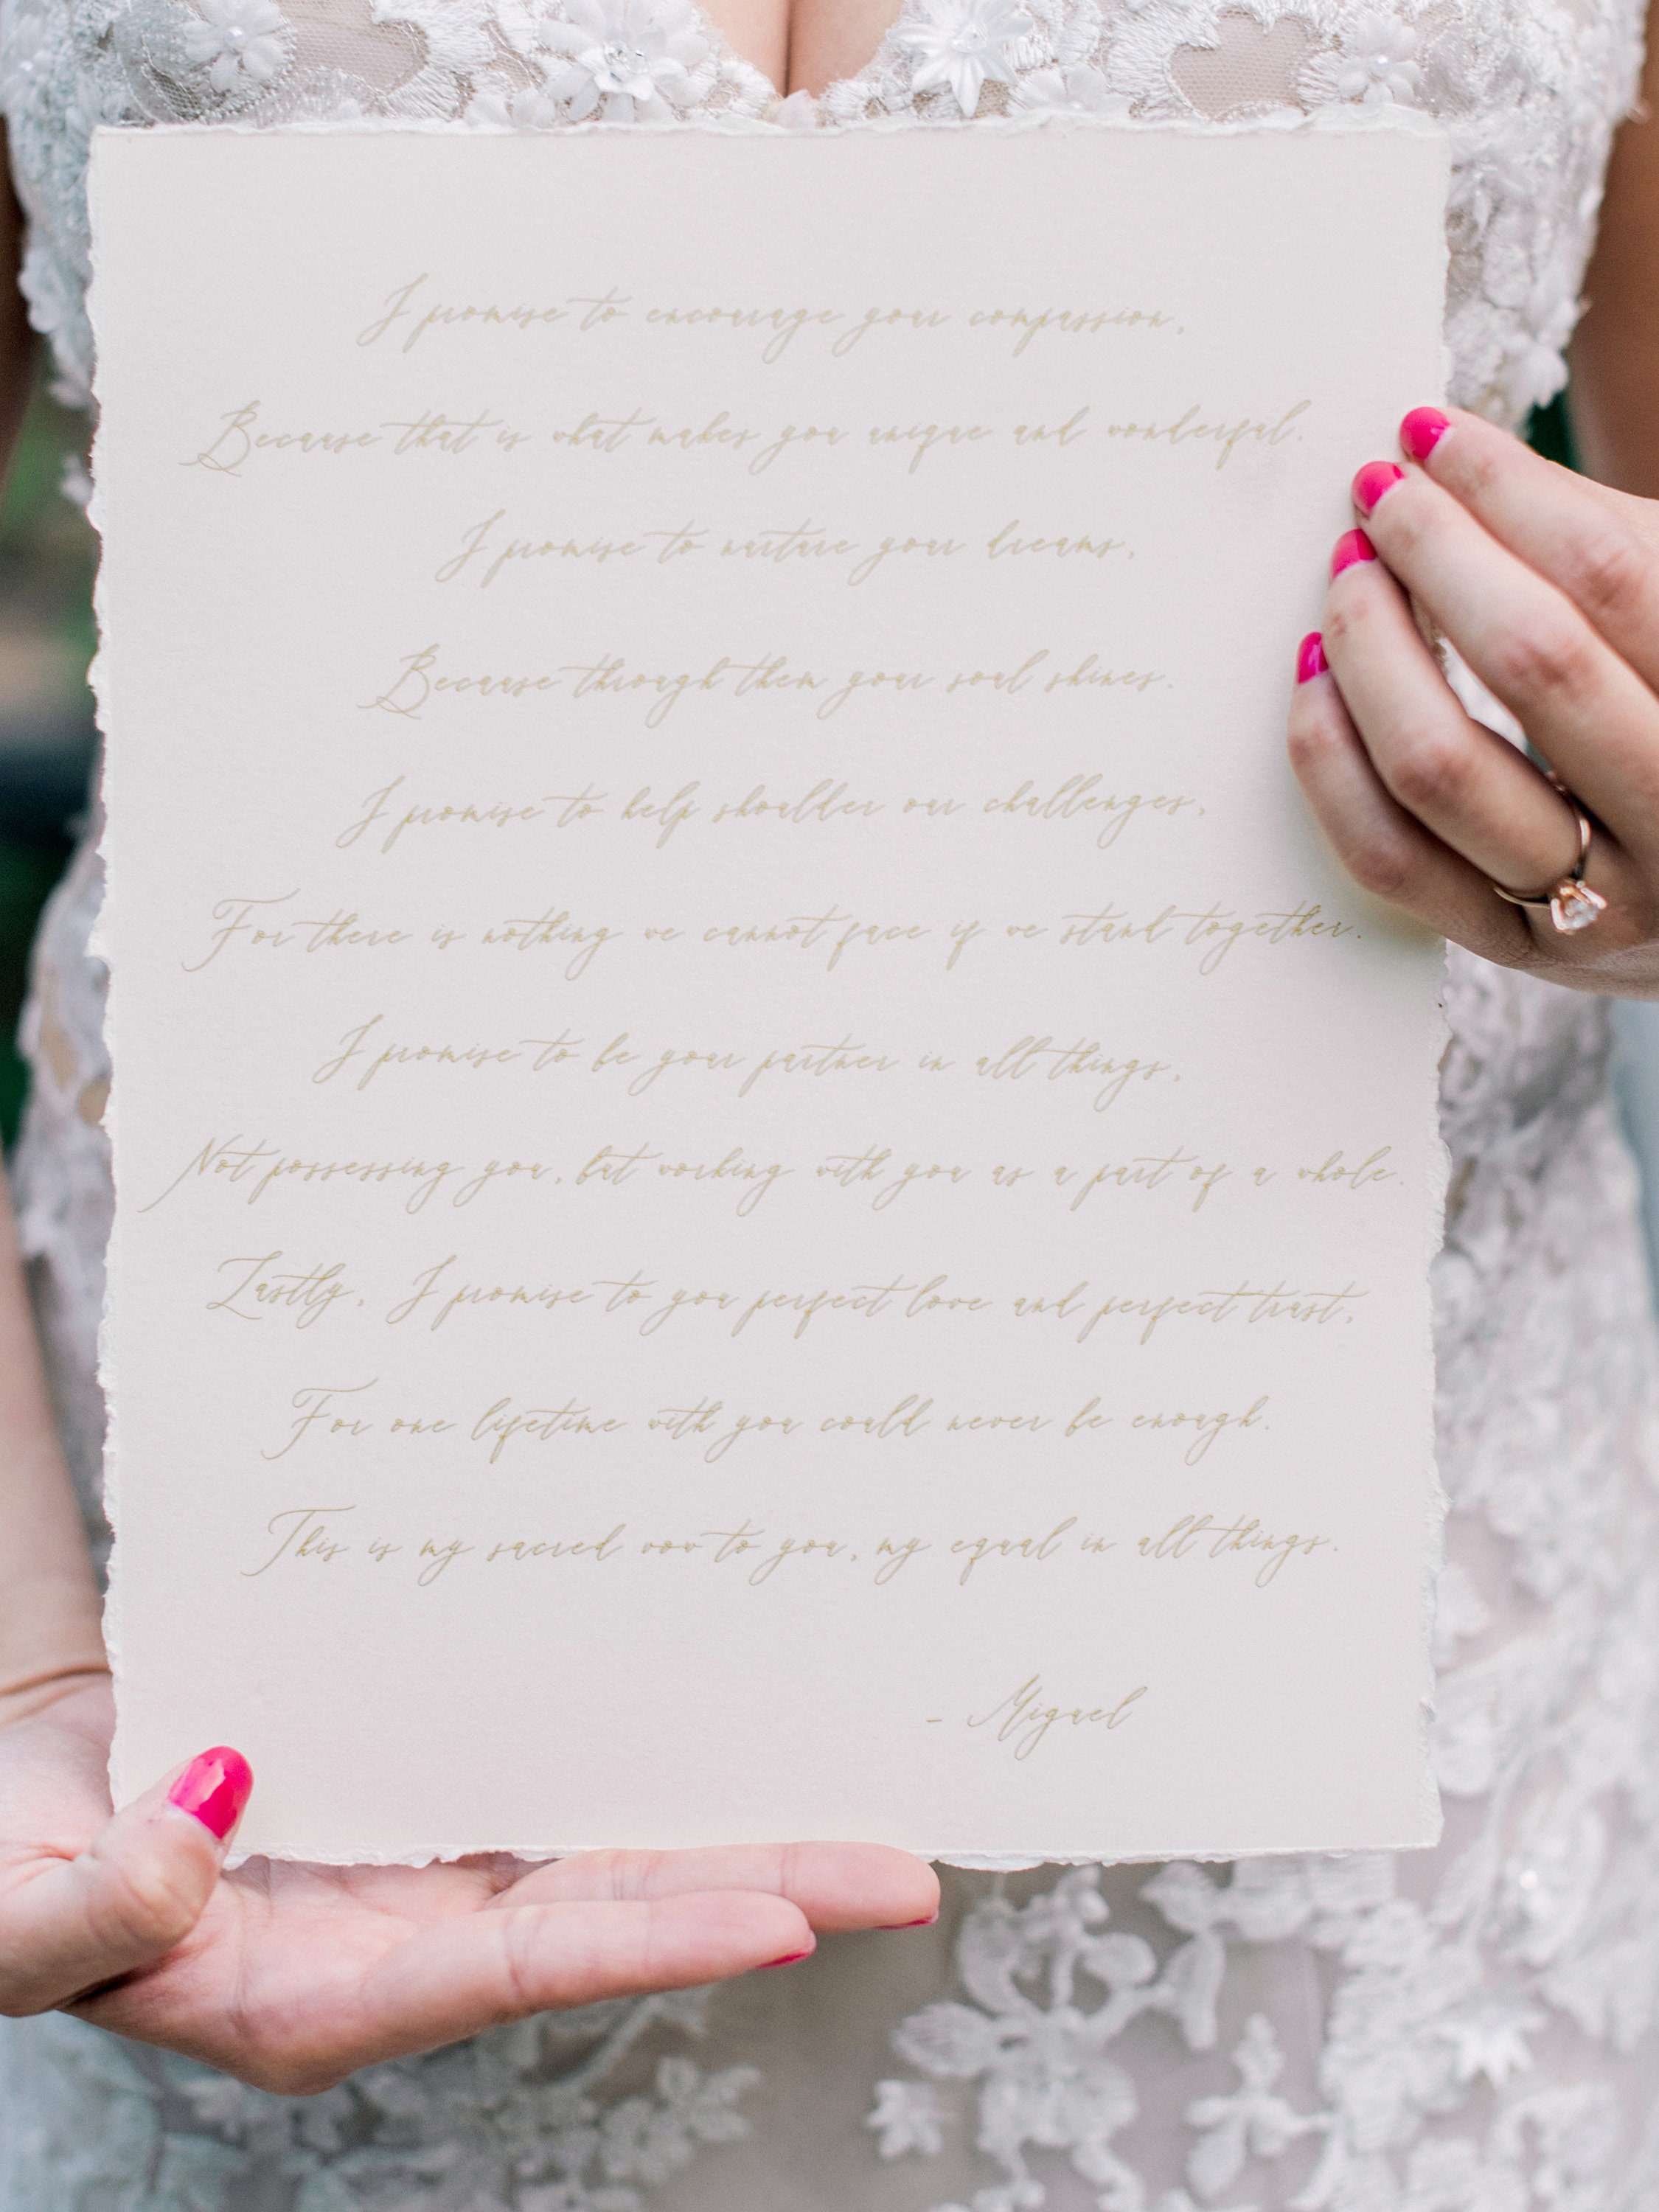 I promise to encourage your compassion,
Because that is what makes you unique and wonderful.
I promise to nurture your dreams,
Because through them your soul shines.
I promise to help shoulder our challenges,
For there is nothing we cannot face if we stand together.
I promise to be your partner in all things,
Not possessing you, but working with you as a part of a whole.
Lastly, I promise to you perfect love and perfect trust,
For one lifetime with you could never be enough.
This is my sacred vow to you, my equal in all things.
- Miguel